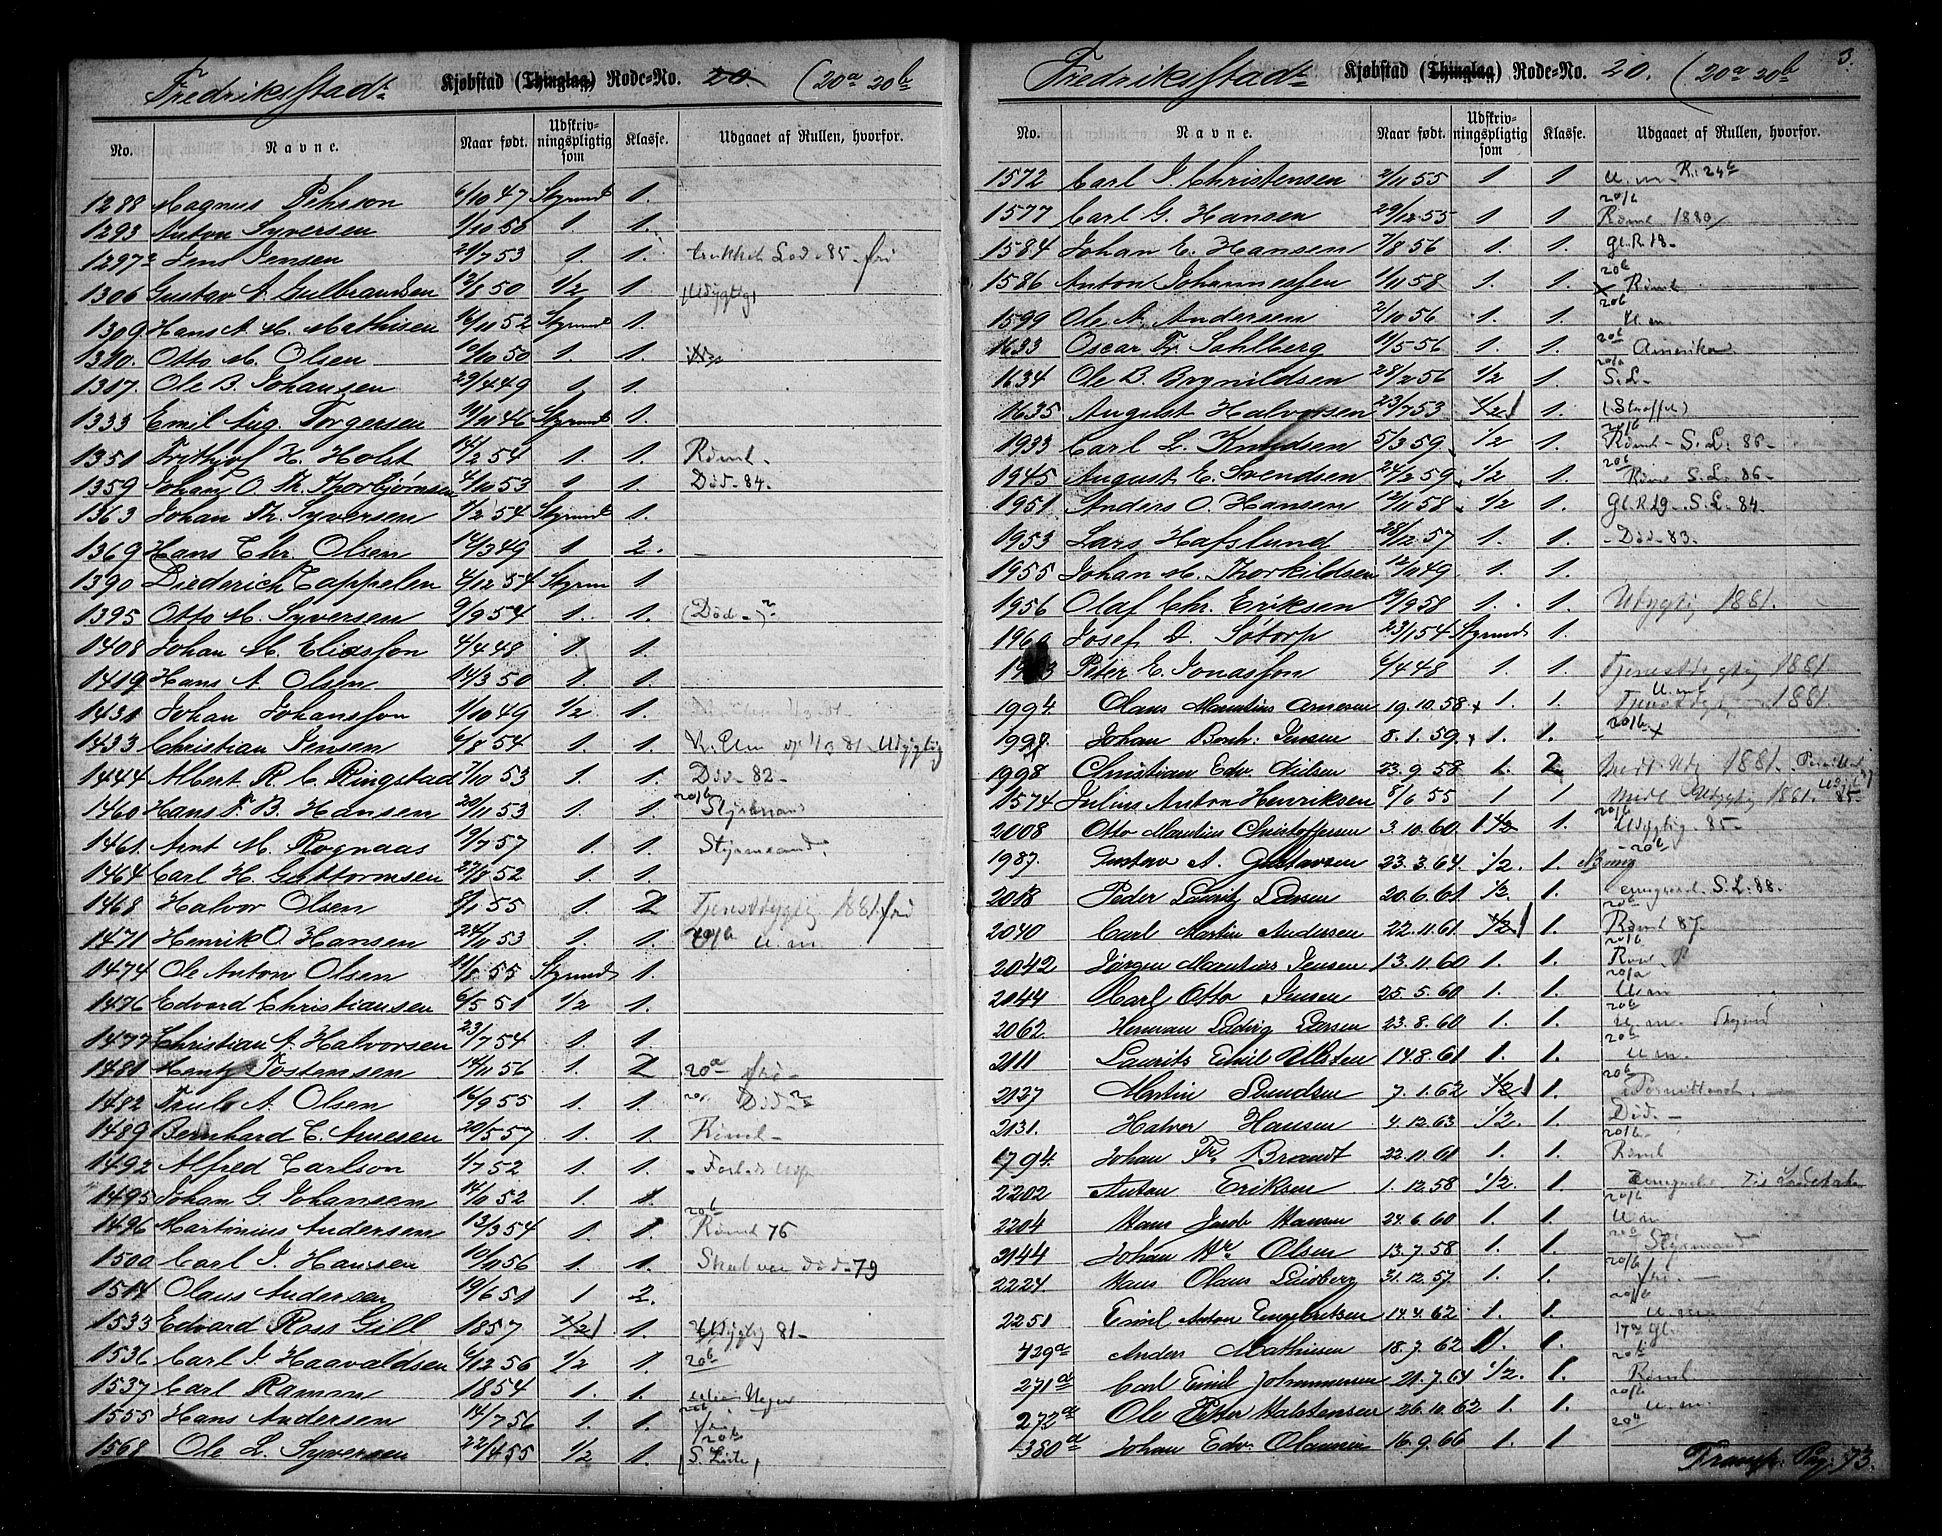 Fredriksstads Kjøbstad (Thinglag) Rode-No. 20. (20a 20b
No. Navne. Naar født. Udskrivningspligtig som Klasse. Udgaaet af Rullen, hvorfor.
1288 Magnus Pehrson 6/10 47 Styrmd 1.
1293 Anton Syversen 1/10 50 1. 1.
1297 Jens Jensen 21/7 53 1. 1. trukket Lod. 85- fri
1306 Gustav A. Gulbrandsen 12/8 50 1/2 1. (Udygtig)
1309 Hans A. M. Mathisen 16/11 52 Styrmd 1.
1310. Otto M. Olsen 10/10 50 1. 1.
1317. Ole B. Johansen 29/4 49 1 1.
1333 Emil Aug. Torgersen 11/11 46 Styrmd 1.
1351 Frithjof H. Holst 14/2 54 1. 1. Rømt-
1359 Johan O. Th. Thorbjørnsen 4/10 53 1 1. Død-84.
1363 Johan Th. Syversen 1/2 54 Styrmd 1.
1369 Hans Chr. Olsen 14/3 49 1 2.
1390 Diederich Cappelen 4/12 54 Styrm 1.
1395 Otto M. Syversen 9/9 54 1. 1. (Død-)
1408 Johan M. Eliasson 4/4 48 1. 1.
1419 Hans A. Olsen 14/3 50 1 1.
1431 Johan Johansson 1/10 49 1/2 1.
1433 Christian Jensen 6/8 54 1. 1. Udygtig
1444 Albert R. C. Ringstad 7/10 53 1. 1. Død-82-
1460 Hans F. B. Hansen 20/11 53 1. 1. 20/b Styrmand
1461. Arnt M. Rognaas 19/7 57 1. 1. Styrmand.
1464 Carl H. Guttormsen 27/8 52 1. 1.
1468 Halvor Olsen 8/1 55 1. 2 Tjenstdygtig 1881. fri
1471 Henrik O. Hansen 24/11 53 1. 1. 20/b U.m
1474 Ole Anton Olsen 11/8 55 Styrmd 1.
1476 Edvard Christiansen 6/5 51 1/2 1.
1477 Christian A. Halvorsen 23/7 54 1. 1.
1481 Hentz Tostensen 14/11 56 1. 2 20a fri-
1482 Truls A. Olsen 16/9 55 1. 1. Død
1489 Bernhard C. Arnesen 20/5 57 1. 1. Rømt-
1492 Alfred Carlson 1/7 52 1. 1.
1495 Johan G. Johansen 14/10 52 1. 1.
1496 Martinius Andersen 13/3 54 1. 1. 20b Rømt 76
1500 Carl J. Hansen 10/10 56 1. 1. Skal være død-79
1514 Olaus Andersen 19/6 51 1 2.
1533 Edvard Ross Gill 1857 1/2 1 1. Udygtig 81-
1536 Carl J. Haavaldsen 6/12 56 1/2 1. 20b
1537 Carl Ramm 1854 1. 1.
1555 Hans Andersen 14/7 56 1. 1.
1568 Ole L. Syversen 22/4 55 1/2 1. 20b (S. Liste)
Fredriksstads Kjøbstad (Thinglag) Rode-No. 20. (20a 20b 3.
No. Navne. Naar født. Udskrivningspligtig som Klasse. Udgaaet af Rullen, hvorfor.
1572 Carl J. Christensen 2/11 55 1 1. U.m- R. 24b
1577 Carl G. Hansen 29/12 55 1. 1. 20/b Rømt 1880/
1584 Johan E. Hansen 7/8 56 1. 1. gl. R 18-
1586 Anton Johannessen 1/11 58 1. 1. 20b x Rømt
1599 Ole A. Andersen 2/10 56 1. 1. 20b U.m.
1633 Oscar Fr. Sahlberg 11/5 56 1. 1. 20b Amerika.
1634 Ole B. Brynildsen 28/2 56 1/2 1. 20/a S.L-
1635 August Halvorsen 23/7 53 1/2 1 1. (Straffet)
1933 Carl L. Knudsen 5/3 59. 1/2 1. 20/b Rømt- S. L. 86-
1945 August E. Svendsen 24/2 59. 1/2 1. 20b Rømt S. L. 86-
1951 Anders O. Hansen 12/11 58. 1/2 1. gl. R 19-. S. L. 84.
1953 Lars Hafslund 28/12 57 1. 1. -Død-83.
1955 Johan M. Thorkildsen 12/11 49 1. 1.
1956 Olaf Chr. Eriksen 19/9 58 1. 1. Udygtig 1881.
1960 Josef D. Søtorp 23/1 54 Styrmd 1.
Peter E. Jonasson 6/4 48 1. 1. Tjenstdygtig 1881
1994. Olaus Martinius Arnesen 19. 10. 58 x 1. 1. U.m Tjenstdygt. 1881.
Johan Bernh. Jensen 8. 1. 59. x 1. 1. 20/b x
1998 Christian Edv. Nielsen 23. 9. 58 1. 2 1881.
1574 Julius Anton Henriksen 8/6 55 1 1 Midl. Udygtig 1881. 85-
2008 Otto Martius Christoffersen 3. 10. 60 1 1/2 1. 20/b Udygtig. 85-
1987. Gustav A. Gustavsen 23. 3. 64. 1/2. 1. -20b
2018 Peder Lauritz Larsen 20. 6. 61 1/2. 1. emigreret. S.L. 88.
2040 Carl Martin Andersen 22. 11. 61 1/2 1 1. 20b Rømt 87.
2042 Jørgen Martinius Jensen 13. 11. 60 1. 1. 20/b
2044 Karl Otto Jensen 25. 5. 60 1. 1. 20/a U.m
2062 Herman Ludvig Larsen 23. 8. 60 1. 1. 20b U.m.
2111 Laurits Emil Ulsten 14. 8. 61 1. 1. 20b U.m.
2137 Martin Lundsen 7. 1. 62 1/2 1 1. 20b Permitteret.
2131. Halvor Hansen 4. 12. 63 1/2. 1. Død.-
1794. Johan Fr. Brandt 22. 11. 61 1. 1. 20/b. Rømt
2202 Anton Eriksen 1. 12. 58 1/2. 1.
2204 Hans Jacob Hansen 24. 6. 60 1. 1. 20/b U.m
2144 Johan Hr. Olsen 13. 7. 58 1. 1. 20a Styrmand
2224 Hans Olaus Lundberg 31. 12. 57 1. 1. 20/b fri.-
2251 Emil Anton Engebretsen 14. 4. 62 1. 1. 20/b U.m
429a Anders Mathisen 18. 7. 62 1. 1. 17a gl.
271a Carl Emil Johannessen 21. 7. 61 1/2. 1. 20b Rømt
272a Ole Petter Halstensen 26. 10. 62 1. 1. 20/b U.m.
380a Johan Edv. Olaussen 16. 9. 66 1. 1 20a
Transp. Pag: 73.